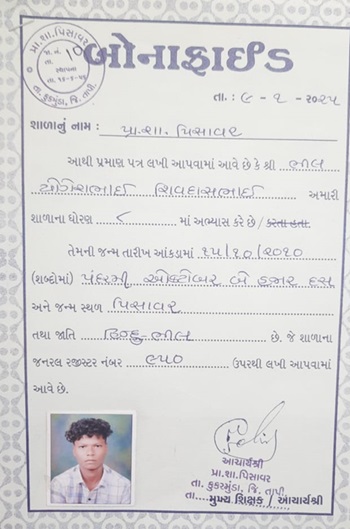 પ્રા.શા.પિસાવર
તા. કુકરમુંડા, જિ. તાપી.
બોનાફાઈડ
તા. : ૯ - ૧ - ૨૦૨૫
શાળાનું નામ : પ્રા.શા. પિસાવર
આથી પ્રમાણ પત્ર લખી આપવામાં આવે છે કે શ્રી ભીલ
યોગેશભાઈ શિવદાસભાઈ અમારી
શાળાના ધોરણ ૮ માં અભ્યાસ કરે છે / કરતા હતા.
તેમની જન્મ તારીખ આંકડામાં ૧૫/૧૦/૨૦૧૦
(શબ્દોમાં) પંદરમી ઓક્ટોબર બે હજાર દસ
અને જન્મ સ્થળ પિસાવર
તથા જાતિ હિન્દુ-ભીલ છે. જે શાળાના
જનરલ રજીસ્ટર નંબર ૯૫૦ ઉપરથી લખી આપવામાં
આવે છે.
આચાર્યશ્રી
પ્રા.શા.પિસાવર
તા. કુકરમુંડા, જિ. તાપી.
તા.... મુખ્ય શિક્ષક / આચાર્યશ્રી